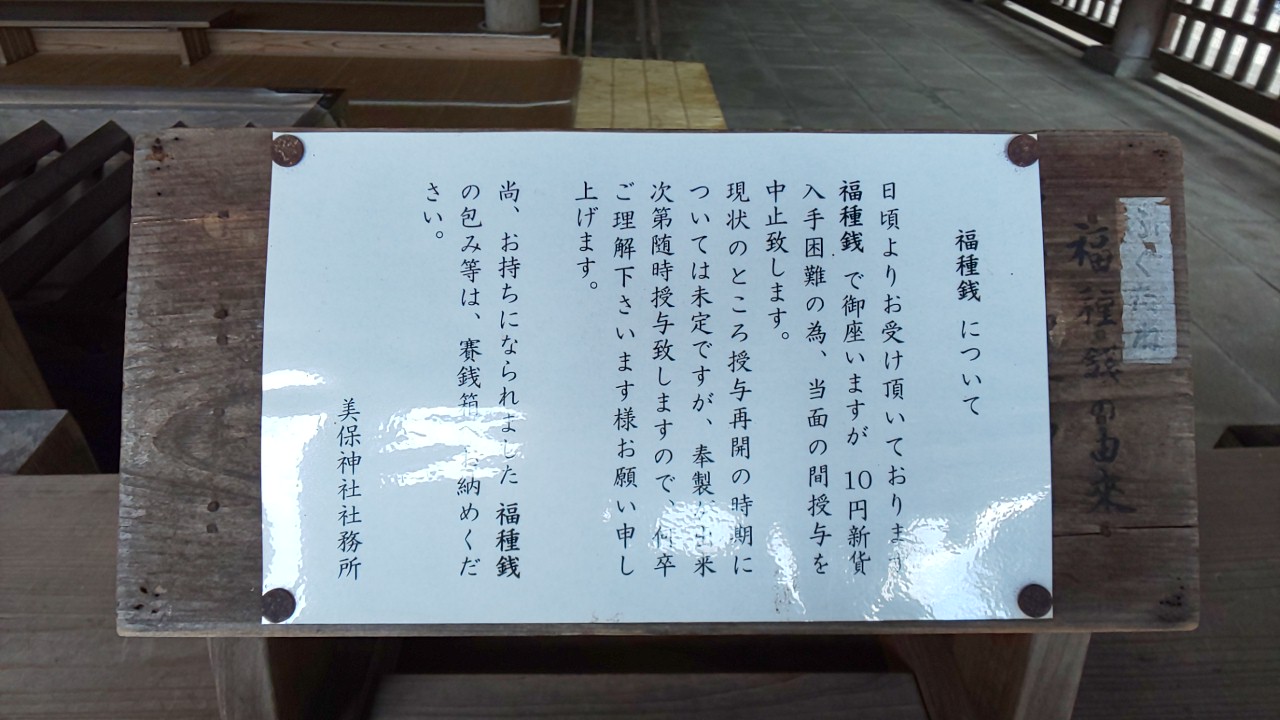 福種銭の由来
福種銭 について
日頃よりお受け頂いております
福種銭 で御座いますが 10円新貨
入手困難の為、当面の間授与を
中止致します。
現状のところ授与再開の時期に
ついては未定ですが、奉製が出来
次第随時授与致しますので、何卒
ご理解下さいます様お願い申し
上げます。
尚、お持ちになられました 福種銭
の包み等は、賽銭箱 お納めくだ
さい。
美保神社社務所